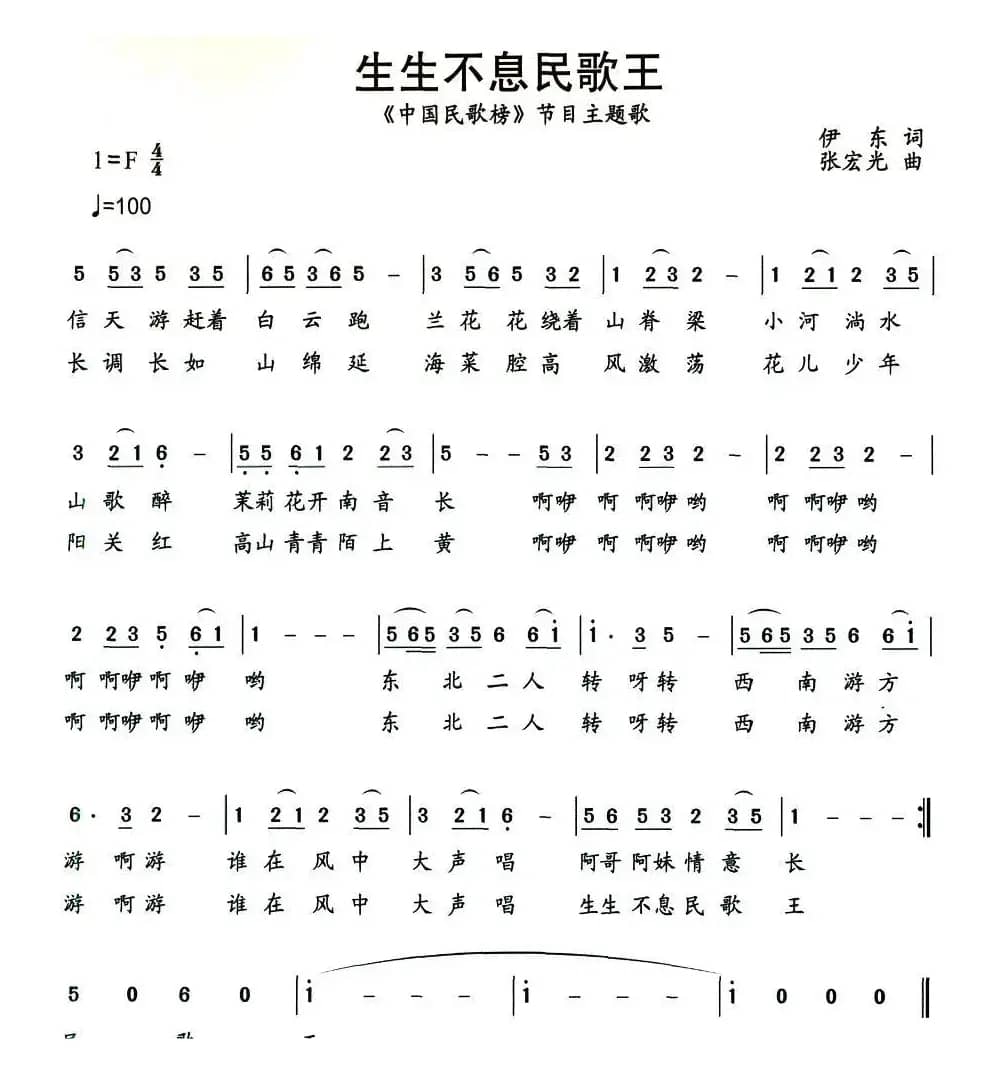 生生不息民歌王
《中国民歌榜》节目主题歌
伊 东 词
1=F 4/4
张宏光 曲
♩=100
5 5 3 5 3 5 | 6 5 3 6 5 - | 3 5 6 5 3 2 | 1 2 3 2 - | 1 2 1 2 3 5 |
信 天 游 赶着 白 云 跑 兰 花 花 绕着 山 脊 梁 小 河 淌 水
长 调 长 如 山 绵 延 海 菜 腔 高 风 激 荡 花 儿 少 年
3 2 1 6̣ - | 5̣ 5̣ 6̣ 1 2 2 3 | 5 - - 5 3 | 2 2 3 2 - | 2 2 3 2 - |
山 歌 醉 茉莉 花开 南 音 长 啊咿 啊 啊咿 哟 啊 啊咿 哟
阳 关 红 高山 青青 陌 上 黄 啊咿 啊 啊咿 哟 啊 啊咿 哟
2 2 3 5̣ 6̣ 1 | 1 - - - | 5 6 5 3 5 6 6 i̇ | i̇· 3 5 - | 5 6 5 3 5 6 6 i̇ |
啊 啊咿 啊 咿 哟 东 北 二 人 转 呀 转 西 南 游 方
啊 啊咿 啊 咿 哟 东 北 二 人 转 呀 转 西 南 游 方
6· 3 2 - | 1 2 1 2 3 5 | 3 2 1 6̣ - | 5 6 5 3 2 3 5 | 1 - - - :‖
游 啊 游 谁 在 风 中 大 声 唱 阿哥 阿妹 情 意 长
游 啊 游 谁 在 风 中 大 声 唱 生生 不息 民 歌 王
5 0 6 0 | i̇ - - - | i̇ - - - | i̇ 0 0 0 ‖